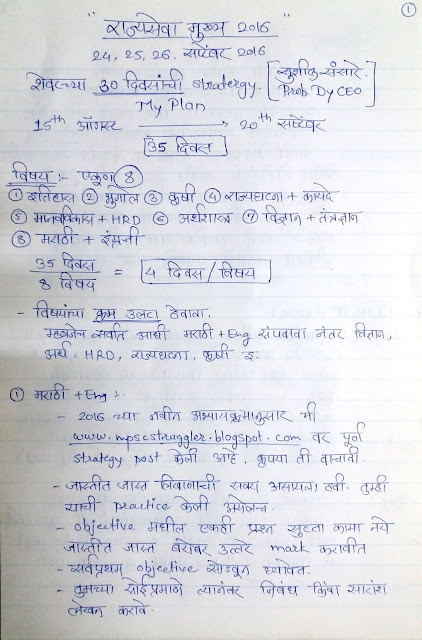 ①
" राज्यसेवा मुख्य 2016 "
24, 25, 26. सप्टेंबर 2016
शेवटच्या 30 दिवसांची stratergy. [सुशील संसारे. Prob Dy CEO]
My Plan
15th ऑगस्ट → 20th सप्टेंबर
35 दिवस
विषय :- एकूण ⑧
① इतिहास ② भुगोल ③ कृषी ④ राज्यघटना + कायदे
⑤ मानवविकास + HRD ⑥ अर्थशास्त्र ⑦ विज्ञान + तंत्रज्ञान
⑧ मराठी + इंग्रजी
35 दिवस / 8 विषय = 4 दिवस / विषय
- विषयांचा क्रम उलटा ठेवावा.
म्हणजेच सर्वात आधी मराठी + Eng संपवावा नंतर विज्ञान,
अर्थ. HRD, राज्यघटना, कृषी इ.
① मराठी + Eng :-
- 2016 च्या नवीन अभ्यासक्रमानुसार मी
www.mpscstruggler.blogspot.com वर पूर्ण
strategy post केली आहे. कृपया ती वाचावी.
- जास्तीत जास्त लिखाणाची सवय असायला हवी. तुम्ही
याची practice केली असेलच.
- objective मधील एकही प्रश्न सुटता कामा नये
जास्तीत जास्त बरोबर उत्तरे mark करावीत
- सर्वप्रथम objective सोडवून घ्यावेत.
- तुमच्या सोईप्रमाणे त्यानंतर निबंध किंवा सारांश
लेखन करावे.